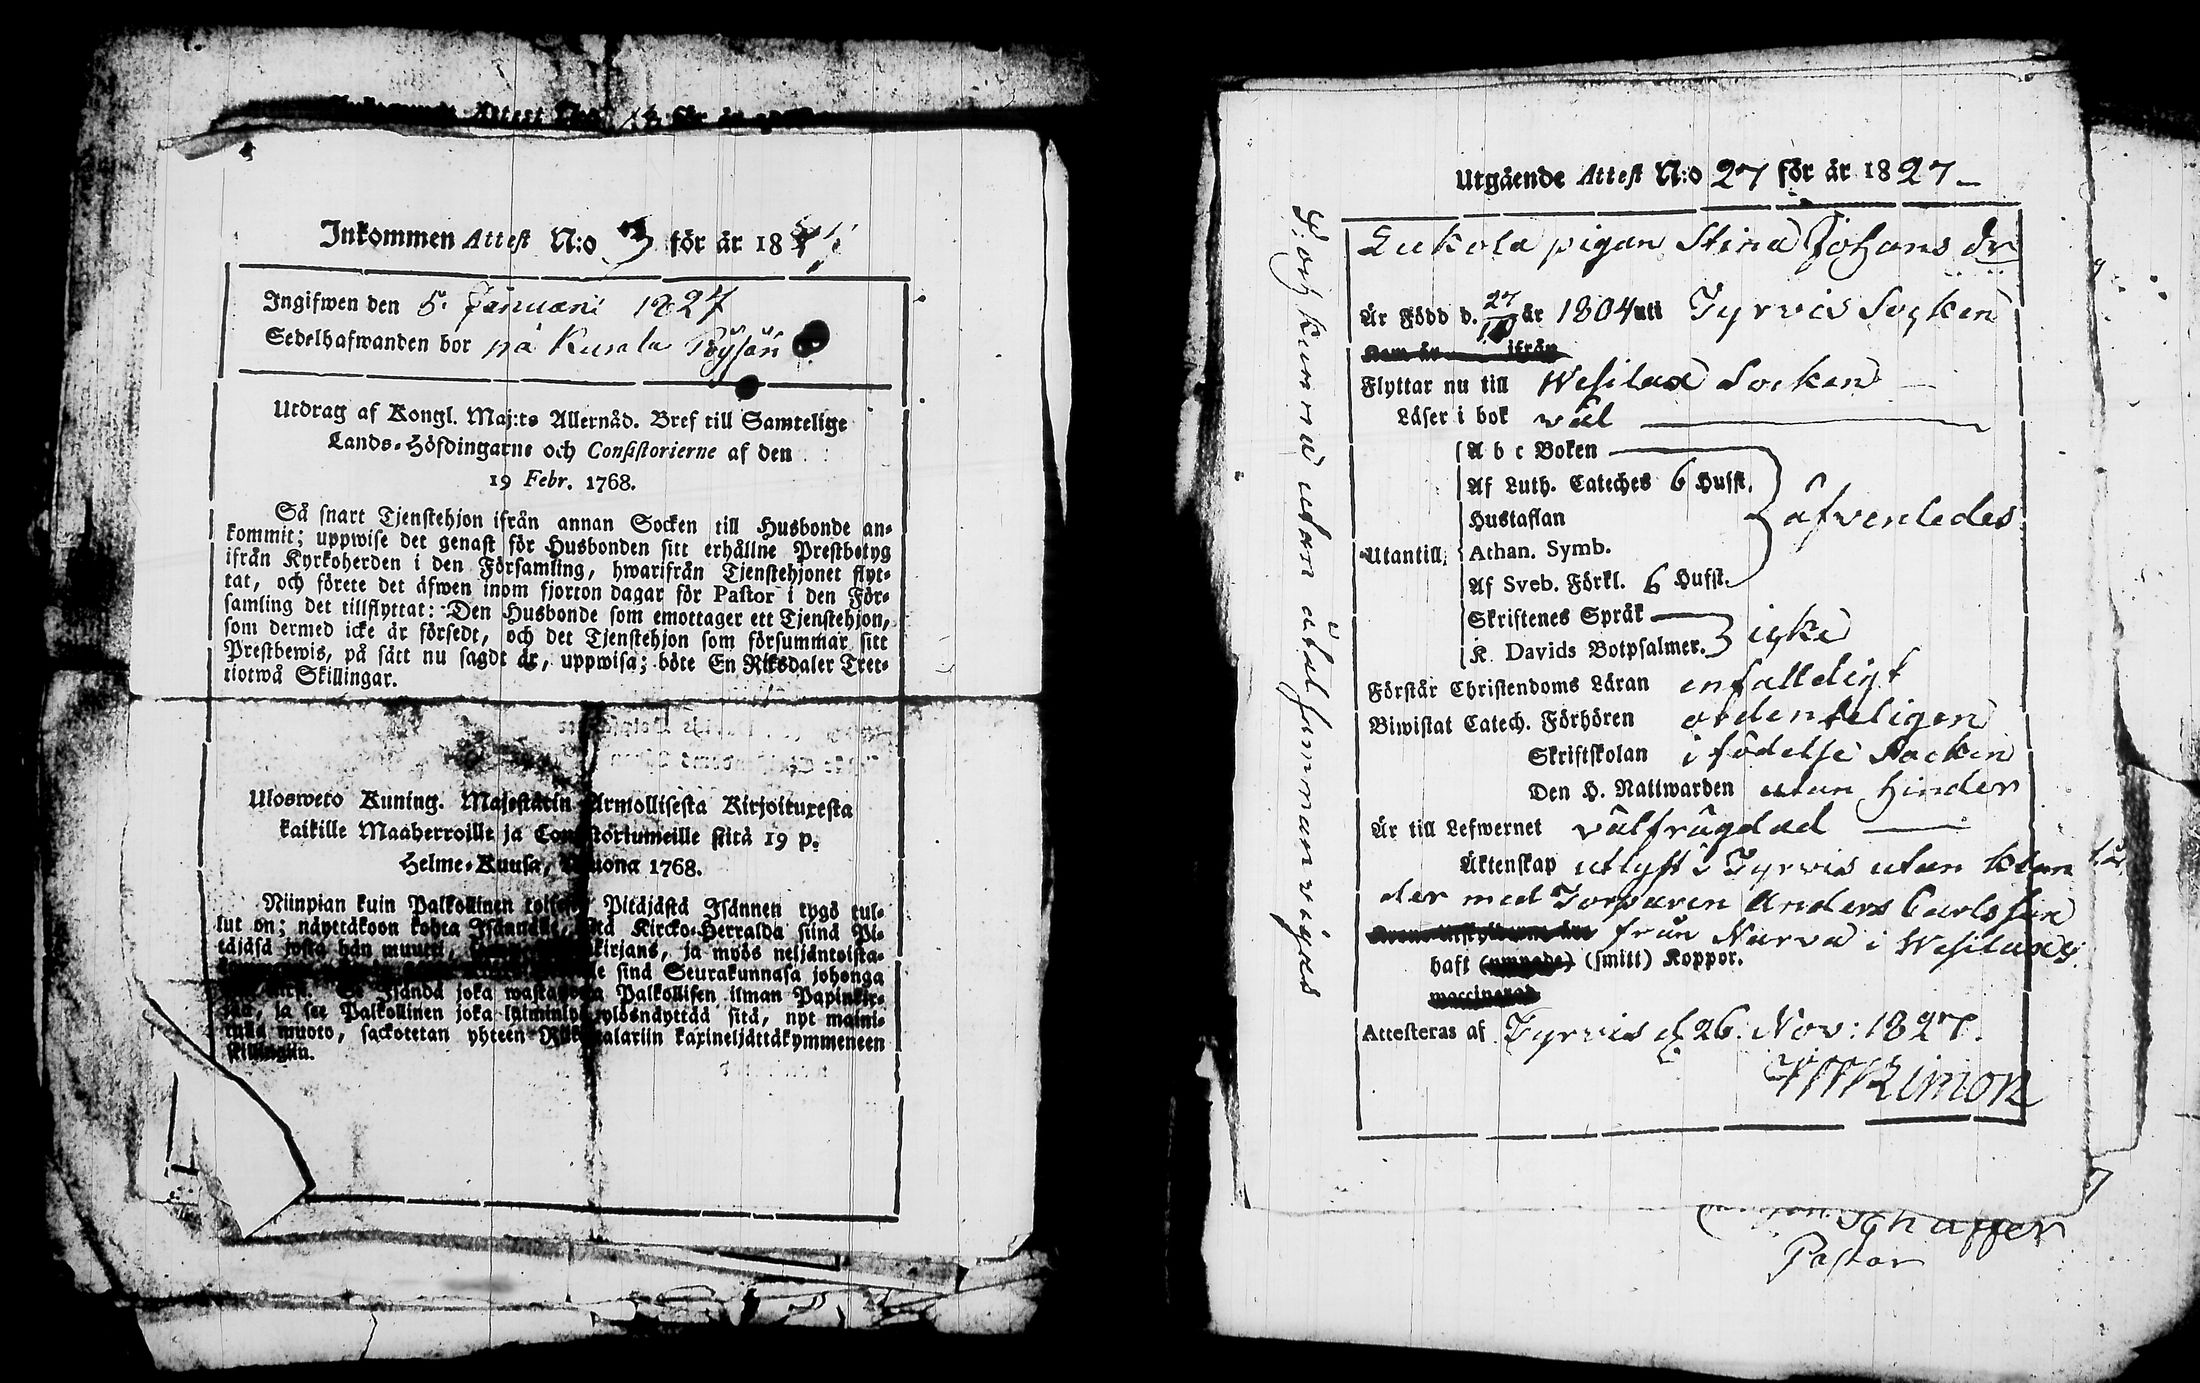 Attest
Inkommen Attest N:o 3 för år 18
Ingifwen den 5. Januari 1827
Sedelhafwanden bor på Kurala
Utdrag af Kongl. Maj:ts Allernåd. Bref till Samtelige
Lands-Höfdingarne och Consistorierne af den
19 Febr. 1768.
Så snart Tjenstehjon ifrån annan Socken till Husbonde an-
kommit; uppwise det genast för Husbonden sitt erhållne Prestbetyg
ifrån Kyrkoherden i den Församling, hwarifrån Tjenstehjonet flyt-
tat, och förete det äfwen inom fjorton dagar för Pastor i den För-
samling det tillflyttat: Den Husbonde som emottager ett Tjenstehjon,
som dermed icke är försedt, och det Tjenstehjon som försummar sitt
Prestbewis, på sätt nu sagdt är, uppwisa; böte En Riksdaler Tret-
tiotwå Skillingar.
Ulosweto Kuning. Majestätin Armollisesta Kirjoituxesta
kaikille Maaherroille ja Consistoriumeille siitä 19 p.
Helme-Kuusa, Wuona 1768.
Niinpian kuin Palkollinen toisesta Pitäjästä Isännen tygö tul-
lut on; näyttäkoon kohta Isännälle, Kircko-Herralda siinä Pi-
täjäsä josta hän muutti, kirjans, ja myös neljäntoista-
sinä Seurakunnasa johonga
Isändä joka wastaanottaa Palkollisen ilman Papinkir-
jata, ja see Palkollinen joka ylösnäyttää sitä, nyt maini-
tulla muoto, sackotetan yhteen Riikintalariin kaxineljättäkymmeneen
skillingiin.
Utgående Attest N:o 27 för år 1827
Kukola pigan Stina Johans dr
Är Född d. 27/10 år 1804 uti Tyrvis Socken
Flyttar nu till Wesilax Socken
Läser i bok väl
A b c Boken
Af Luth. Cateches 6 Hufst.
Hustaflan
äfvenledes
Utantill, Athan. Symb.
Af Sveb. Förkl. 6 Hufst.
Skriftenes Språk
K. Davids Botpsalmer. icke
Förstår Christendoms Läran enfalldigt
Biwistat Catech. Förhören ordenteligen
Skriftskolan i födelse Socken
Den H. Nattwarden utan hinder
Är till Lefwernet välfrägdad
Äktenskap utlyst i Tyrvis utan klan
der med Torparen Anders Carlsson
från Narva i Wesilax
haft (smitt) Koppor.
Attesteras af Tyrvis d. 26. Nov: 1827.
och kunna utan åtal sammanvigas
Schaffer
Pastor